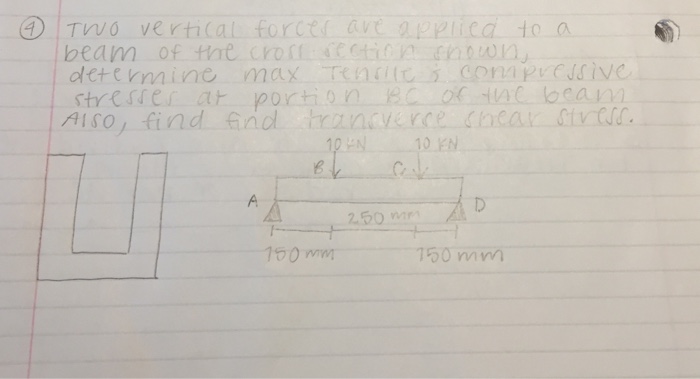 4 Two vertical forces are applied to a
beam of the cross section shown,
determine max Tensile & compressive
stresses at portion BC of the beam
Also, find find transverse shear stress.
10 KN 10 KN
B C
A D
250 mm
150 mm 150 mm